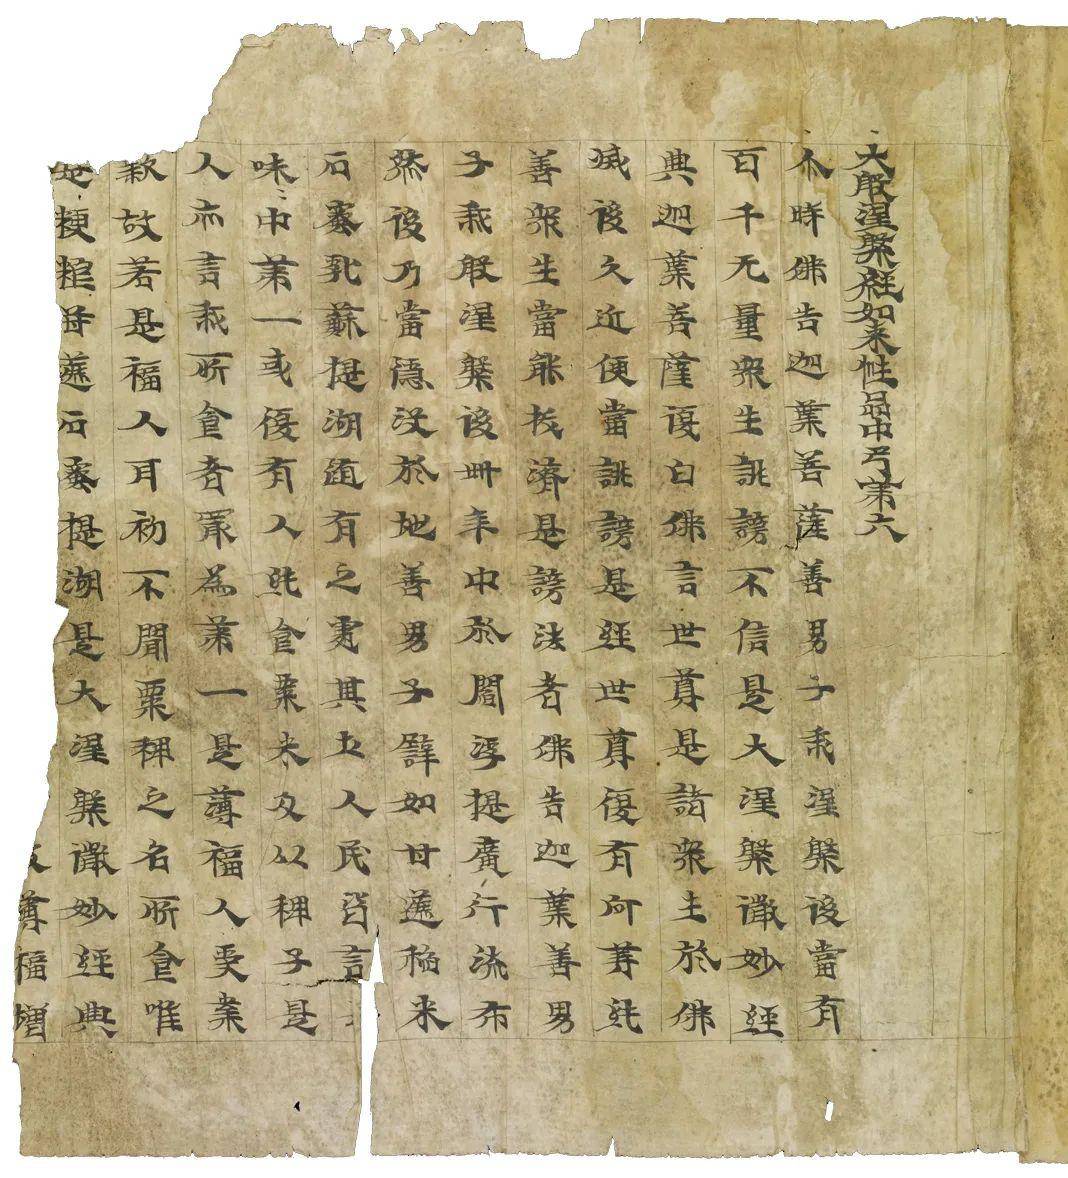 大般涅槃經如来性品中弓第六
尒時佛告迦葉菩薩善男子我涅槃後當有
百千无量衆生誹謗不信是大涅槃微妙經
典迦葉菩薩復白佛言世尊是諸衆生於佛
滅後久近便當誹謗是經世尊復有何等純
善衆生當能拔濟是謗法者佛告迦葉善男
子我般涅槃後卌年中於閻浮提廣行流布
然後乃當隱没於地善男子譬如甘蔗稻米
石蜜乳蘇提湖随有之處其土人民皆言
味中第一或復有人純食粟米及以稗子是
人亦言我所食者冣為第一是薄福人受業
報故若是福人耳初不聞粟稗之名所食唯
是粳粮甘蔗石蜜提湖是大涅槃微妙經典
薄福增